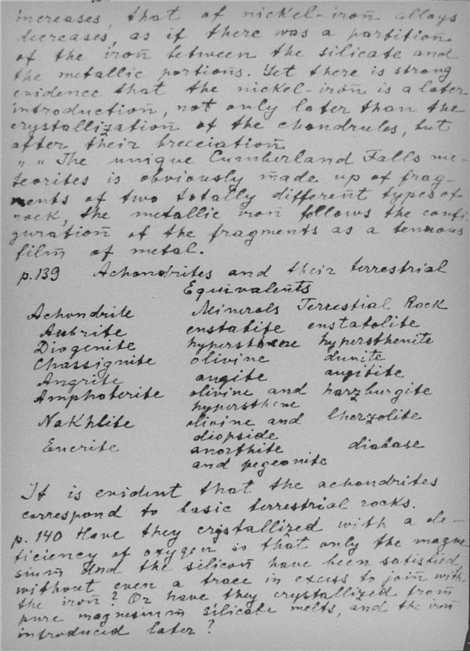 increases, that of nickel-iron alloys
decreases, as if there was a partition
of the iron between the silicate and
the metallic portions. Yet there is strong
evidence that the nickel-iron is a later
introduction, not only later than the
crystallization of the chondrules, but
after their brecciation
" " The unique Cumberland Falls me-
teorites is obviously made up of frag-
ments of two totally different types of
rock, the metallic iron follows the confi-
guration of the fragments as a tenuous
film of metal.
p.139 Achondrites and their terrestrial
Equivalents
Achondrite Minerals Terrestial Rock
Aubrite enstatite enstatolite
Diogenite hypersthene hypersthenite
Chassignite olivine dunite
Angrite augite augitite
Amphoterite olivine and harzburgite
hypersthene
Nakhlite olivine and lherzolite
diopside
Eucrite anorthite diabase
and pegeonite
It is evident that the achondrites
correspond to basic terrestrial rocks.
p. 140 Have they crystallized with a de-
ficiency of oxygen so that only the magne
sium and the silicon have been satisfied,
without even a trace in excess to join with
the iron? Or have they crystallized from
pure magnesium silicate melts, and the iron
introduced later?